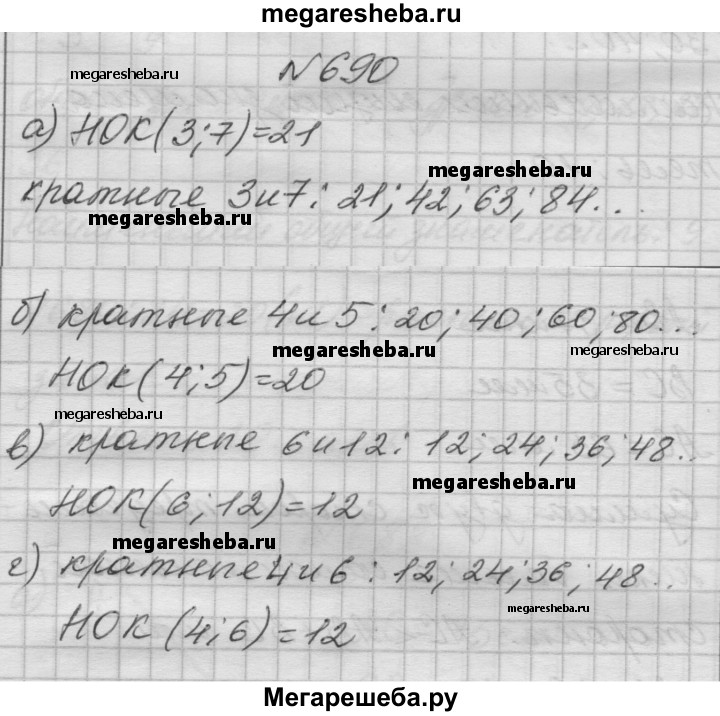 megaresheba.ru
№690
megaresheba.ru
а) НОК(3;7)=21
megaresheba.ru
кратные 3и7: 21; 42; 63; 84...
megaresheba.ru
б) кратные 4и5: 20; 40; 60; 80...
megaresheba.ru
megaresheba.ru
НОК(4;5)=20
megaresheba.ru
в) кратные 6и12: 12; 24; 36; 48..
megaresheba.ru
НОК(6;12)=12
megaresheba.ru
г) кратные 4и6: 12; 24; 36; 48...
megaresheba.ru
НОК (4;6)=12
Мегарешеба.ру